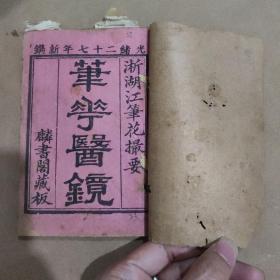 光緒二十七年新鐫
浙湖江筆花撮要
筆花醫鏡
麟書閣藏板